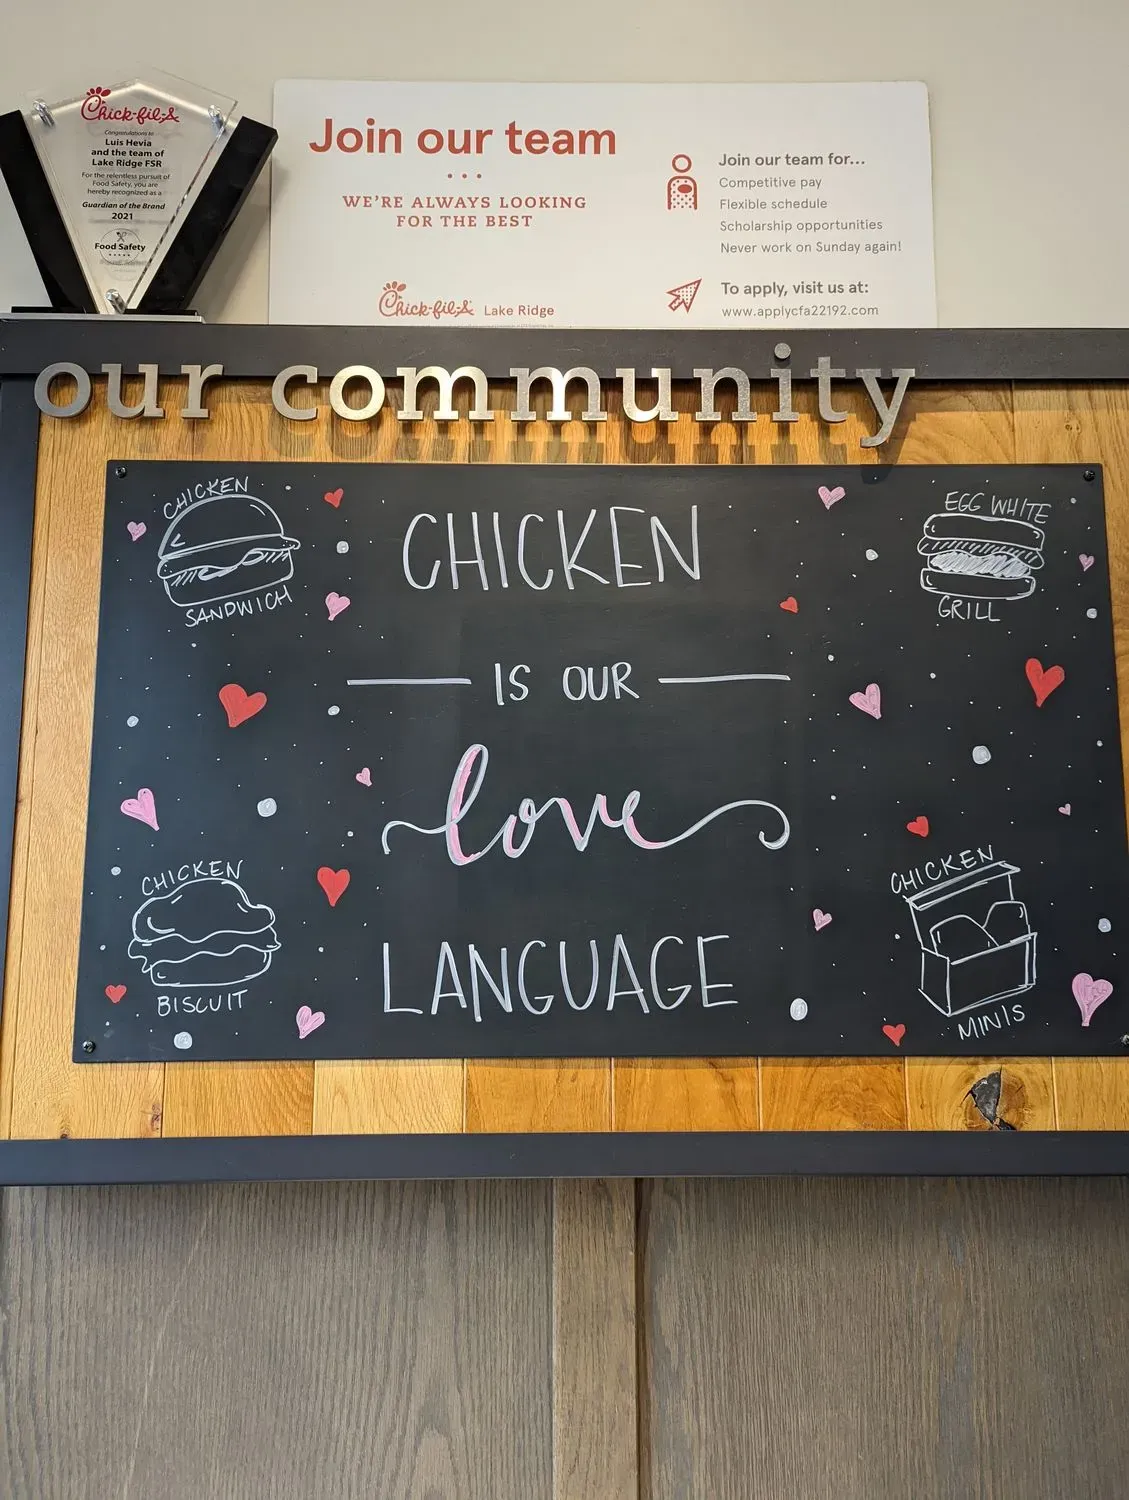 Chick-fil-A
Congratulations to
Luis Hevia
and the team of
Lake Ridge FSR
For the relentless pursuit of
Food Safety, you are
hereby recognized as a
Guardian of the Brand
2021
Food Safety
Join our team
WE'RE ALWAYS LOOKING
FOR THE BEST
Chick-fil-A Lake Ridge
Join our team for...
Competitive pay
Flexible schedule
Scholarship opportunities
Never work on Sunday again!
To apply, visit us at:
www.applycfa22192.com
our community
CHICKEN
SANDWICH
EGG WHITE
GRILL
CHICKEN
IS OUR
love
LANGUAGE
CHICKEN
BISCUIT
CHICKEN
MINIS